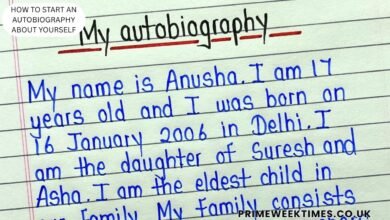 HOW TO START AN
AUTOBIOGRAPHY
ABOUT YOURSELF
My autobiography
My name is Anusha. I am 17
years old and I was born on
16 January 2006 in Delhi. I
am the daughter of Suresh and
Asha. I am the eldest child in
family. My family consists
PRIMEWEEKTIMES.CO.UK